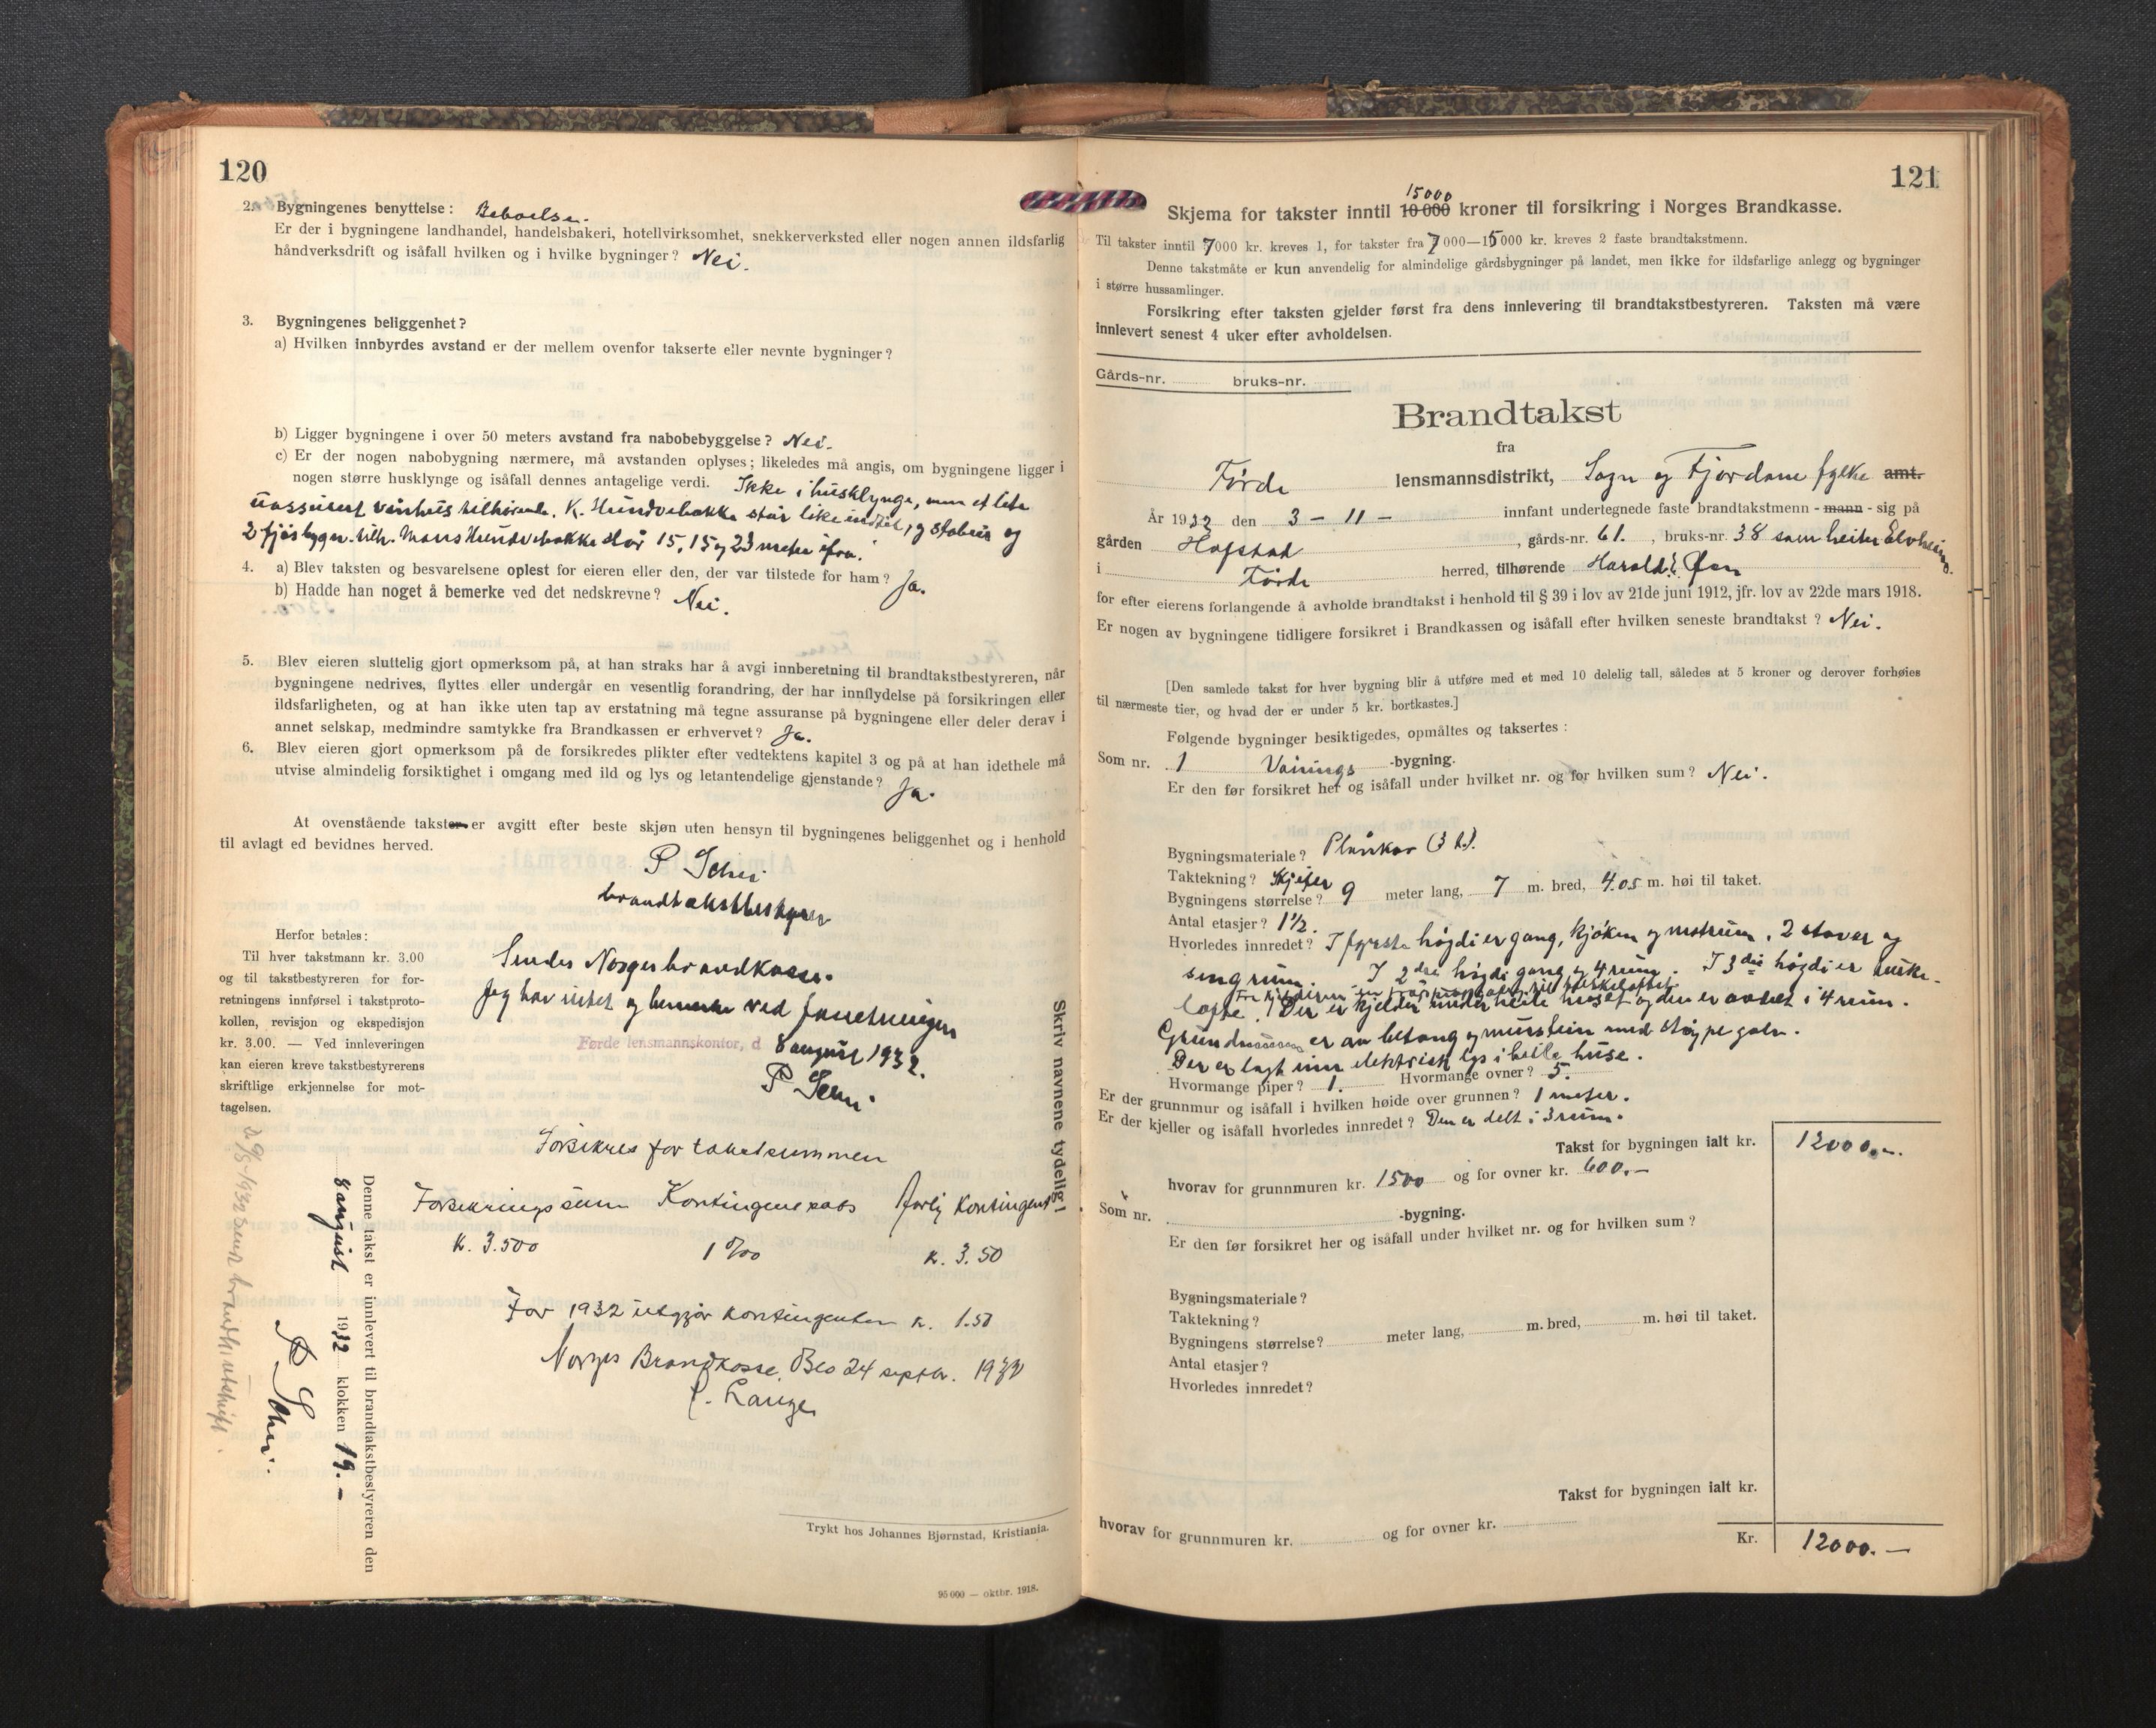 120
2. Bygningenes benyttelse: Beboelse.
Er der i bygningene landhandel, handelsbakeri, hotellvirksomhet, snekkerverksted eller nogen annen ildsfarlig
håndverksdrift og isåfall hvilken og i hvilke bygninger? Nei.
3. Bygningenes beliggenhet?
a) Hvilken innbyrdes avstand er der mellem ovenfor takserte eller nevnte bygninger?
b) Ligger bygningene i over 50 meters avstand fra nabobebyggelse? Nei.
c) Er der nogen nabobygning nærmere, må avstanden oplyses; likeledes må angis, om bygningene ligger i
nogen større husklynge og isåfall dennes antagelige verdi. Ikke i husklynge, men et lite
uassurert vånhus tilhörende K. Hundvebakke står like indtil, og stabur og
2 fjøsbygn. tilh. Mons Hundvebakke står 15, 15 og 23 meter ifra.
4. a) Blev taksten og besvarelsene oplest for eieren eller den, der var tilstede for ham? Ja.
b) Hadde han noget å bemerke ved det nedskrevne? Nei.
5. Blev eieren sluttelig gjort opmerksom på, at han straks har å avgi innberetning til brandtakstbestyreren, når
bygningene nedrives, flyttes eller undergår en vesentlig forandring, der har innflydelse på forsikringen eller
ildsfarligheten, og at han ikke uten tap av erstatning må tegne assuranse på bygningene eller deler derav i
annet selskap, medmindre samtykke fra Brandkassen er erhvervet? Ja.
6. Blev eieren gjort opmerksom på de forsikredes plikter efter vedtektens kapitel 3 og på at han idethele må
utvise almindelig forsiktighet i omgang med ild og lys og letantendelige gjenstande? Ja.
At ovenstående takster er avgitt efter beste skjøn uten hensyn til bygningenes beliggenhet og i henhold
til avlagt ed bevidnes herved.
P Schei
brandtakstbestyrer
Herfor betales:
Til hver takstmann kr. 3.00
og til takstbestyreren for for-
retningens innførsel i takstproto-
kollen, revisjon og ekspedisjon
kr. 3.00. — Ved innleveringen
kan eieren kreve takstbestyrerens
skriftlige erkjennelse for mot-
tagelsen.
Sendes Norges brandkasse.
Jeg har intet og bemerke ved forretningen
Førde lensmannskontor, d 8 august 1932.
P Schei
Forsikres for takstsummen
Forsikringssum Kontingentsats Årlig kontingent
k. 3.500 1 ‰ k. 3.50
For 1932 utgjør kontingenten k. 1.50
Norges Brandkasse, Oslo 24 septbr. 1932
C. Lange
Skriv navnene tydelig!
Denne takst er innlevert til brandtakstbestyreren den
8 august 1932 klokken 19.-
P Schei.
29/8-1932 sendt brandk. utskrift.
Trykt hos Johannes Bjørnstad, Kristiania.
95 000 — oktbr. 1918.
121
15000
Skjema for takster inntil 10 000 kroner til forsikring i Norges Brandkasse.
Til takster inntil 7000 kr. kreves 1, for takster fra 7000—15000 kr. kreves 2 faste brandtakstmenn.
Denne takstmåte er kun anvendelig for almindelige gårdsbygninger på landet, men ikke for ildsfarlige anlegg og bygninger
i større hussamlinger.
Forsikring efter taksten gjelder først fra dens innlevering til brandtakstbestyreren. Taksten må være
innlevert senest 4 uker efter avholdelsen.
Gårds-nr. bruks-nr.
Brandtakst
fra
Förde lensmannsdistrikt, Sogn og Fjordane fylke amt.
År 1932 den 3 - 11 - innfant undertegnede faste brandtakstmenn - mann - sig på
gården Hafstad, gårds-nr. 61., bruks-nr. 38 som heiter Elvheim
i Förde herred, tilhørende Harald Øen
for efter eierens forlangende å avholde brandtakst i henhold til § 39 i lov av 21de juni 1912, jfr. lov av 22de mars 1918.
Er nogen av bygningene tidligere forsikret i Brandkassen og isåfall efter hvilken seneste brandtakst? Nei.
[Den samlede takst for hver bygning blir å utføre med et med 10 delelig tall, således at 5 kroner og derover forhøies
til nærmeste tier, og hvad der er under 5 kr. bortkastes.]
Følgende bygninger besiktigedes, opmåltes og taksertes:
Som nr. 1 Vånings -bygning.
Er den før forsikret her og isåfall under hvilket nr. og for hvilken sum? Nei.
Bygningsmateriale? Plankar (3 t.).
Taktekning? Skifer
Bygningens størrelse? 9 meter lang, 7 m. bred, 4.05 m. høi til taket.
Antal etasjer? 1½.
Hvorledes innredet? I fyrste högdi er gang, kjöken og matrum, 2 stover og
sengrum. I 2dre högdi gang og 4 rum. I 3die högdi er turke-
lofte. Der er kjelder under heile huset og den er avdelt i 4 rum.
Grundmuren er av betong og murstein med støype golv.
Der er lagt inn elektrisk lys i heile huse.
Hvormange piper? 1. Hvormange ovner? 5.
Er der grunnmur og isåfall i hvilken høide over grunnen? 1 meter.
Er der kjeller og isåfall hvorledes innredet? Den er delt i 3 rum.
Takst for bygningen ialt kr. 12000.-
hvorav for grunnmuren kr. 1500 og for ovner kr. 600.-
Som nr. -bygning.
Er den før forsikret her og isåfall under hvilket nr. og for hvilken sum?
Bygningsmateriale?
Taktekning?
Bygningens størrelse? meter lang, m. bred, m. høi til taket.
Antal etasjer?
Hvorledes innredet?
Takst for bygningen ialt kr.
hvorav for grunnmuren kr. og for ovner kr.
Kr. 12000.-